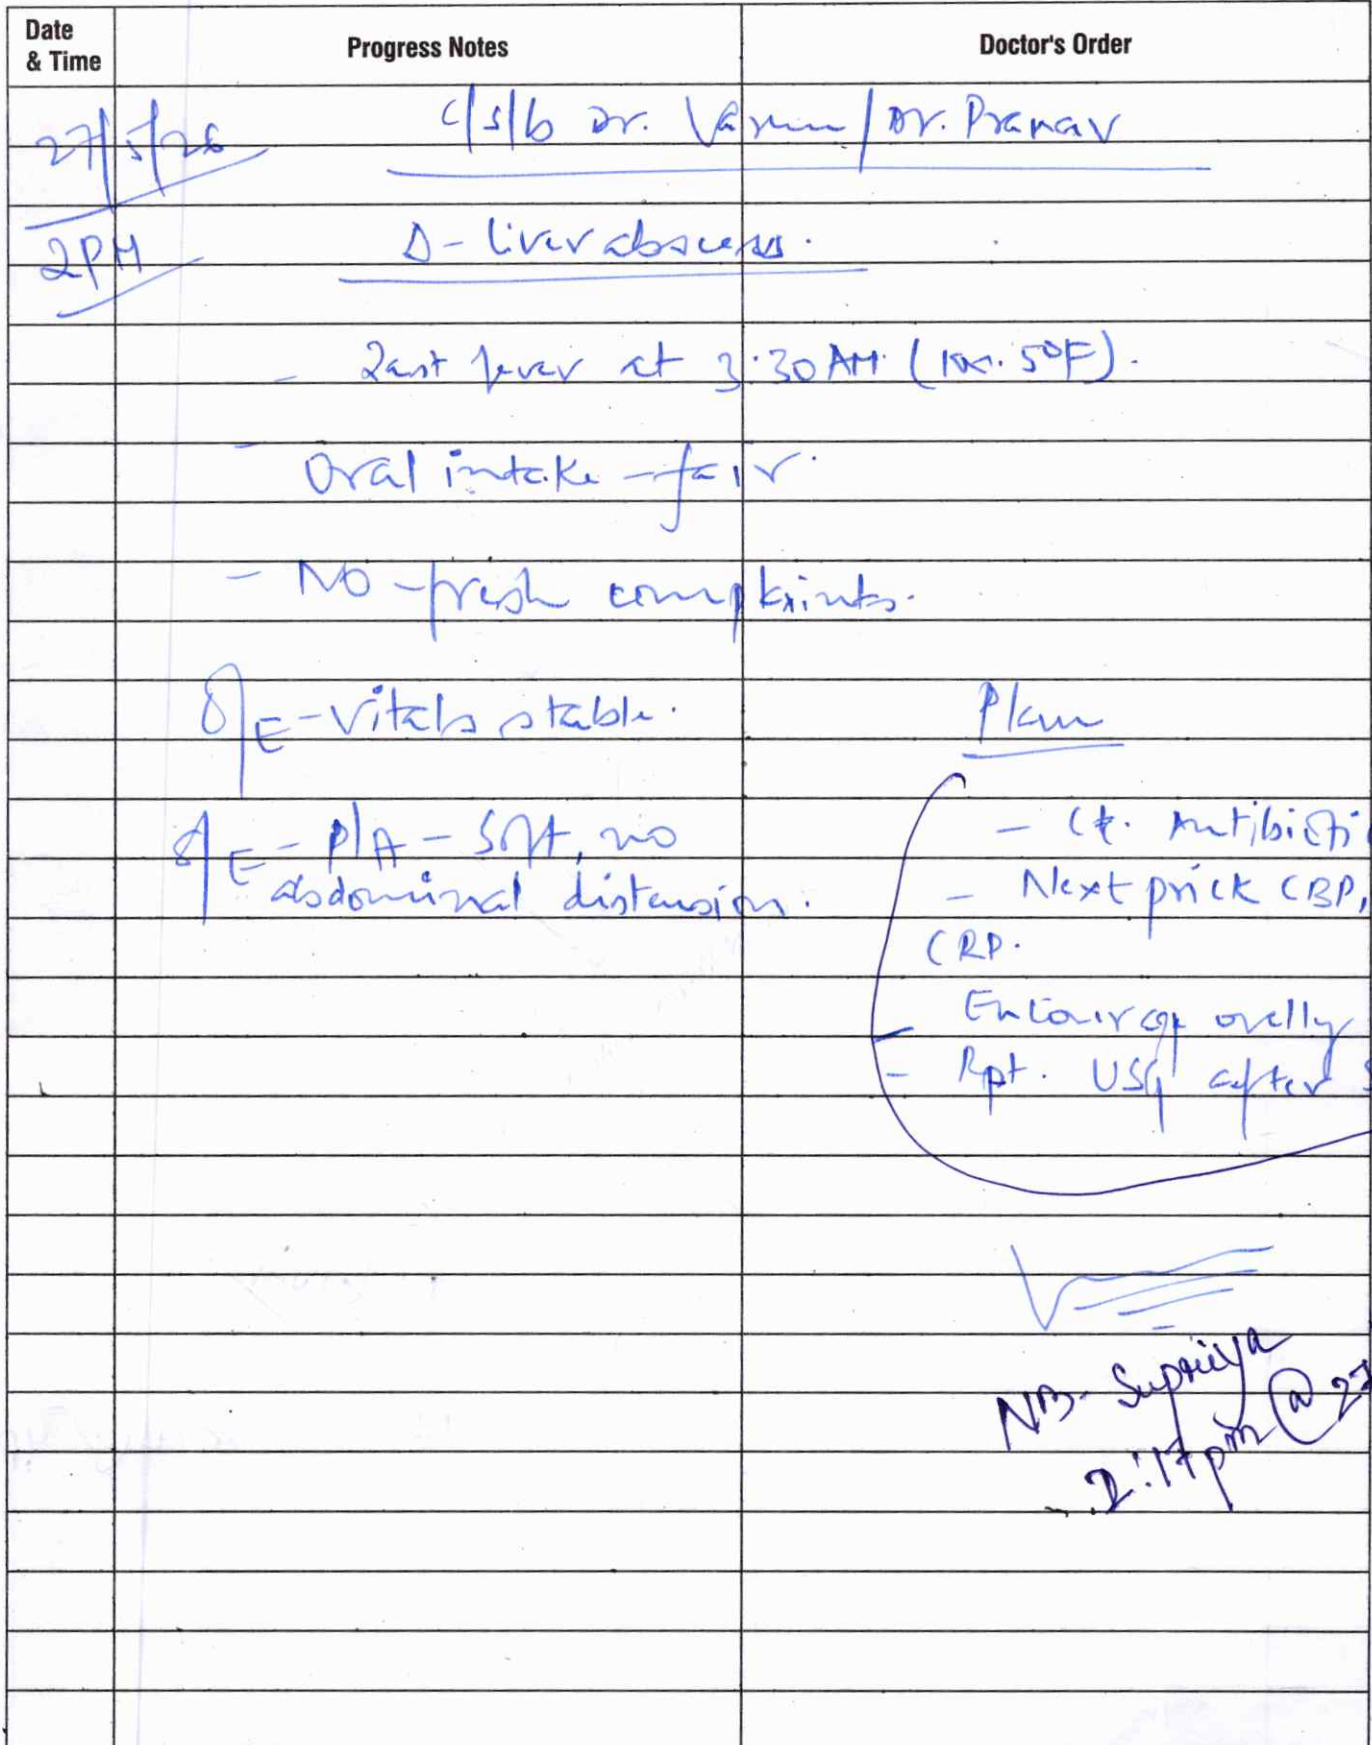 Date & Time
Progress Notes
Doctor's Order
27/5/26
c/s/b Dr. Varun / Dr. Pranav
2PM
Δ - liver abscess.
- Last fever at 3:30 AM ( .5°F).
- Oral intake - fair.
- No fresh complaints.
O/E - Vitals stable.
Plan
S/E - P/A - Soft, no
abdominal distension.
- Ct. Antibioti
- Next prick CBP,
CRP.
- Encourage orally
- Rpt. USG after
NB- Supriya
2:17pm @ 27